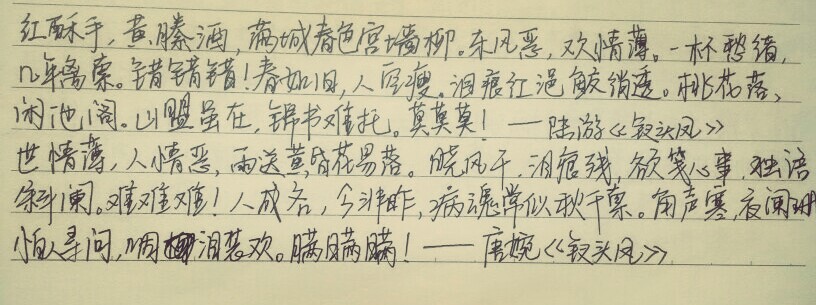 红酥手,黄縢酒,满城春色宫墙柳。东风恶,欢情薄。一杯愁绪,
几年离索。错错错!春如旧,人空瘦。泪痕红浥鲛绡透。桃花落、
闲池阁。山盟虽在,锦书难托。莫莫莫!——陆游《钗头凤》
世情薄,人情恶,雨送黄昏花易落。晓风干,泪痕残,欲笺心事,独语
斜阑。难难难!人成各,今非昨,病魂常似秋千索。角声寒,夜阑珊
怕人寻问,咽泪装欢。瞒瞒瞒!——唐婉《钗头凤》